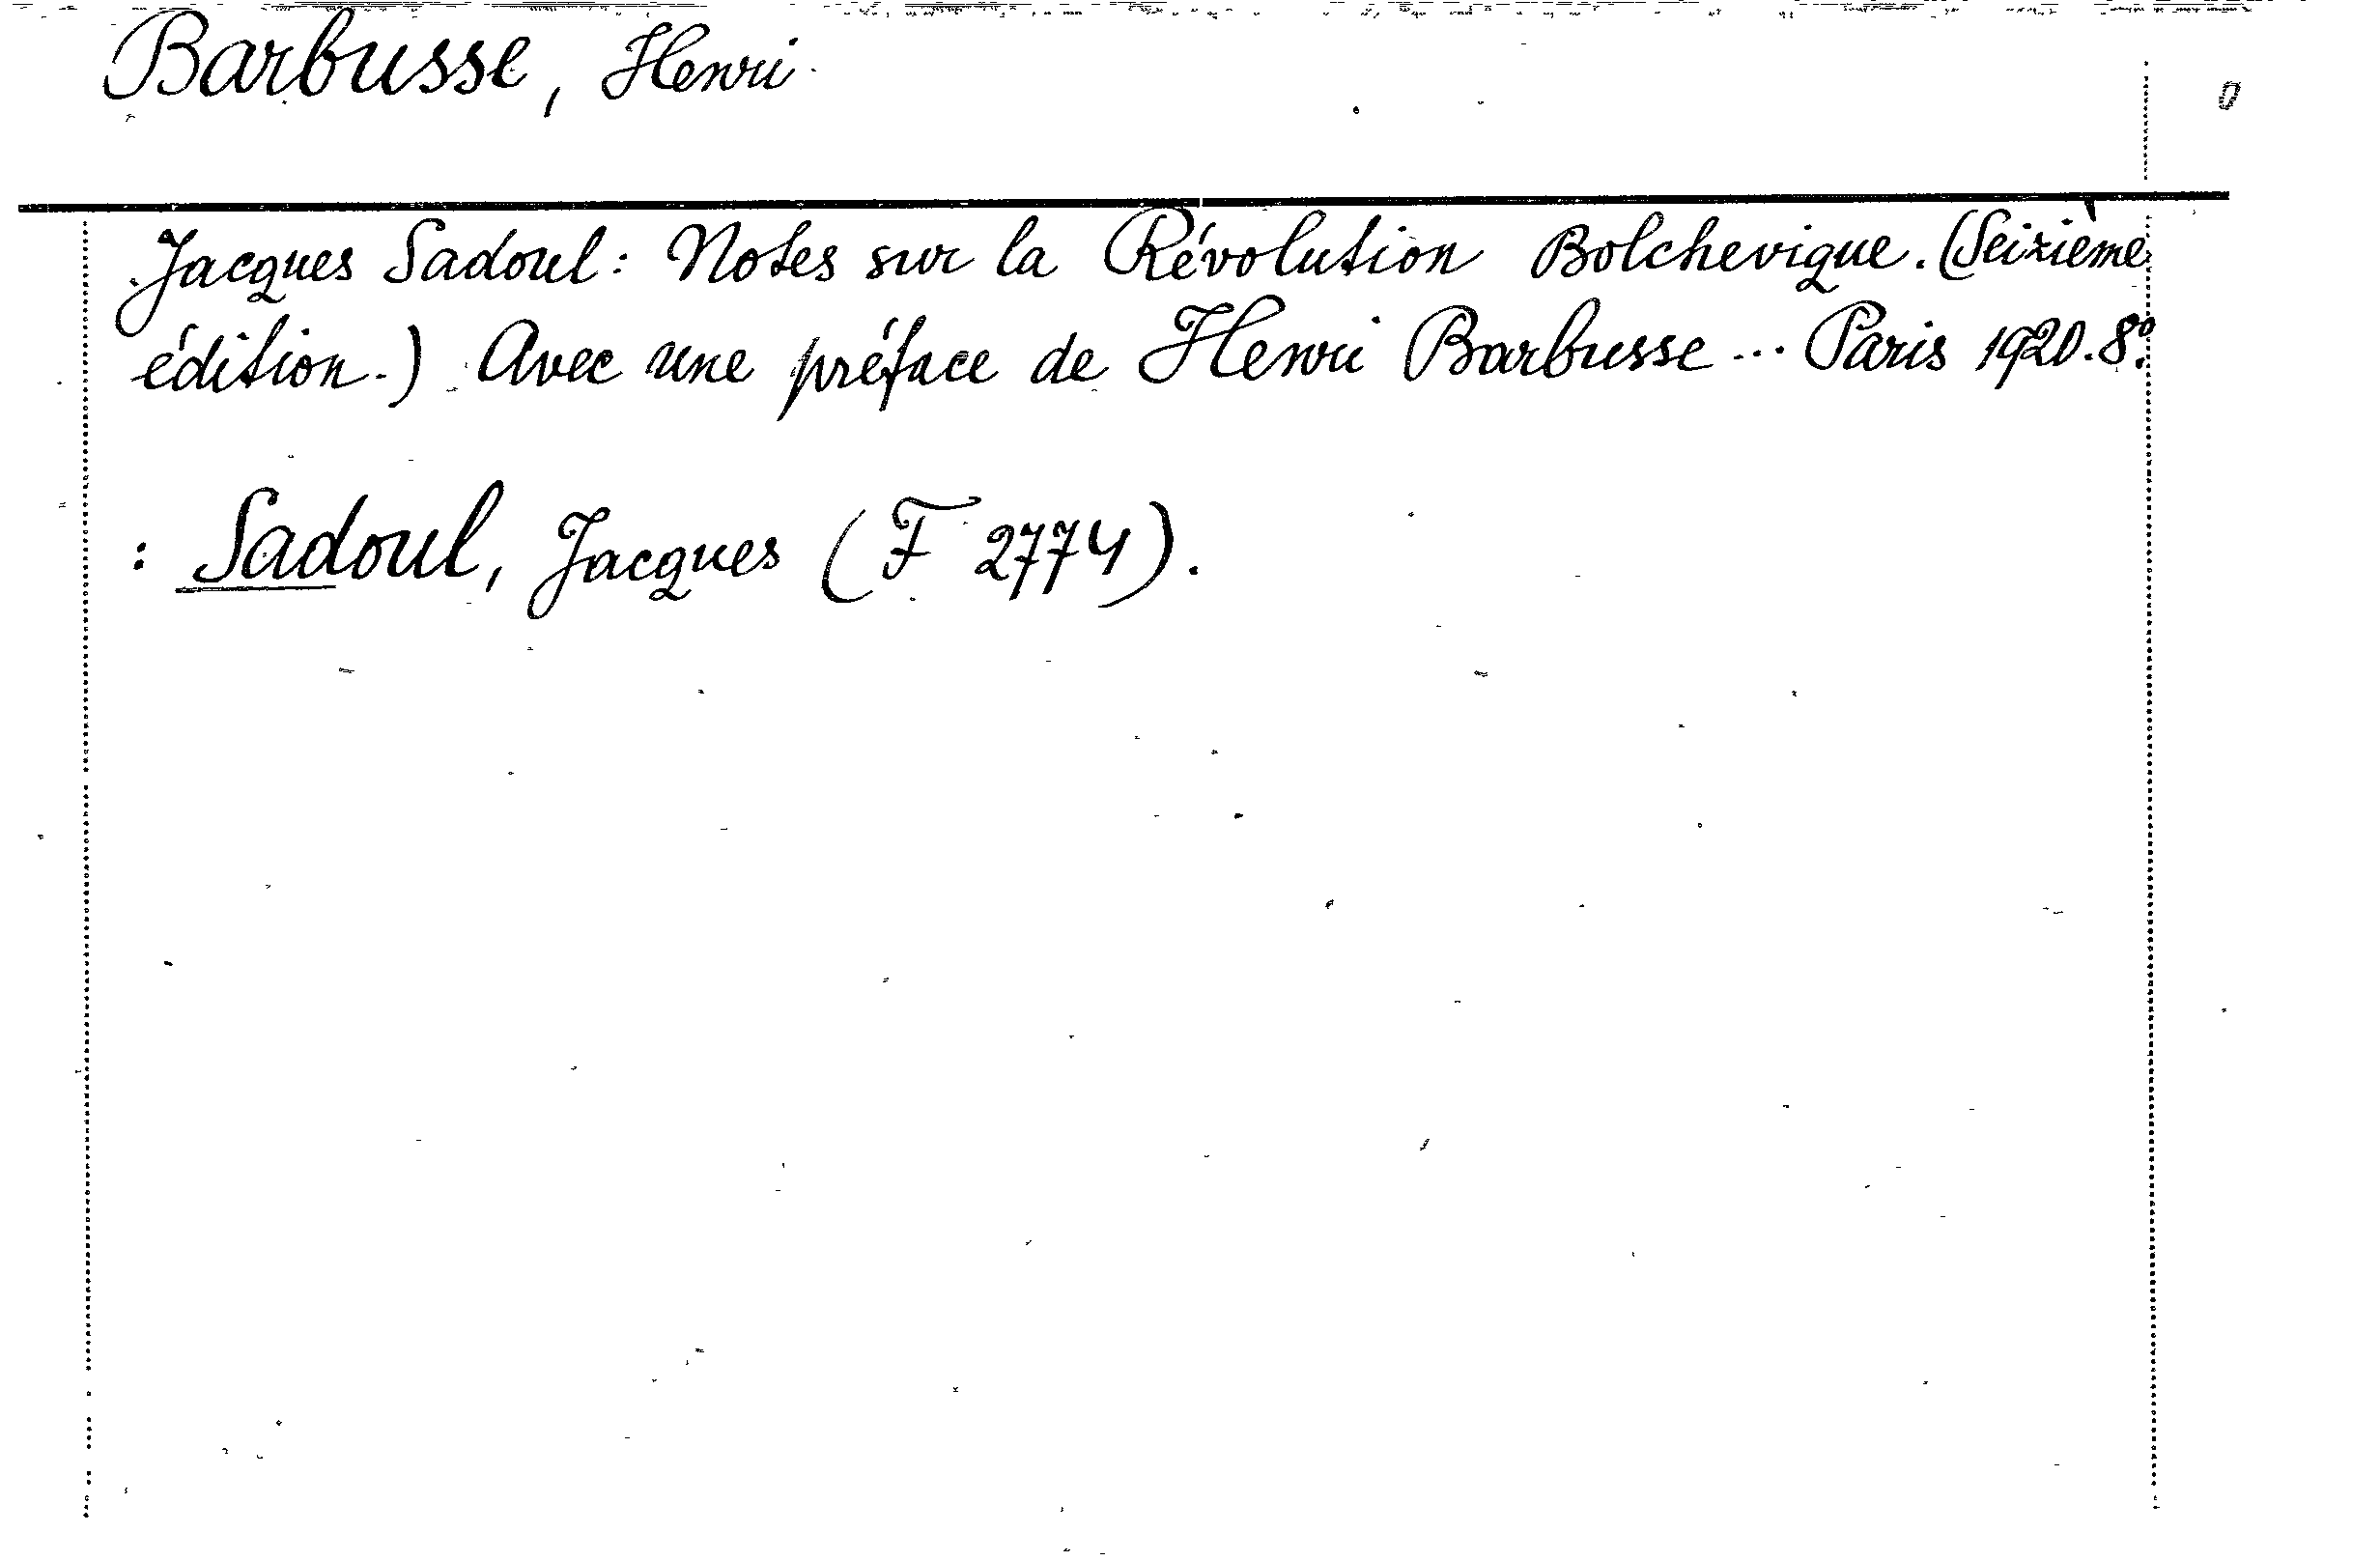 Barbusse, Henri
Jacques Sadoul: Notes sur la Révolution Bolchevique. (Seizième
édition.) Avec une préface de Henri Barbusse... Paris 1920. 8º.
: Sadoul, Jacques (F 2774).